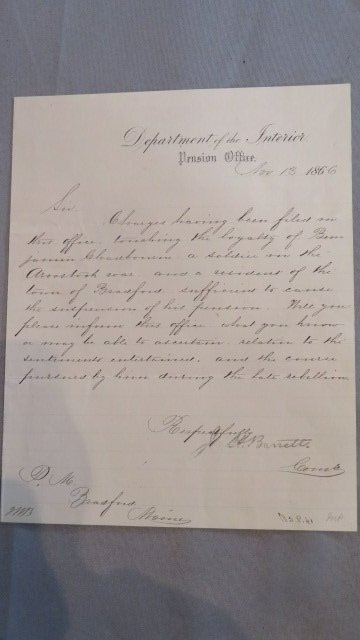 Department of the Interior,
Pension Office,
Nov 13 1866
Sir.
Charges having been filed in
this office, touching the loyalty of Ben-
jamin Chadbourn a soldier in the
Aroostook war, and a resident of the
town of Bradford, sufficient to cause
the suspension of his pension. Will you
please inform this office what you know
or may be able to ascertain, relation to the
sentiments entertained, and the course
pursued by him during the late rebellion.
Respectfully
Barrett
Comr
P. M.
Bradford
Maine